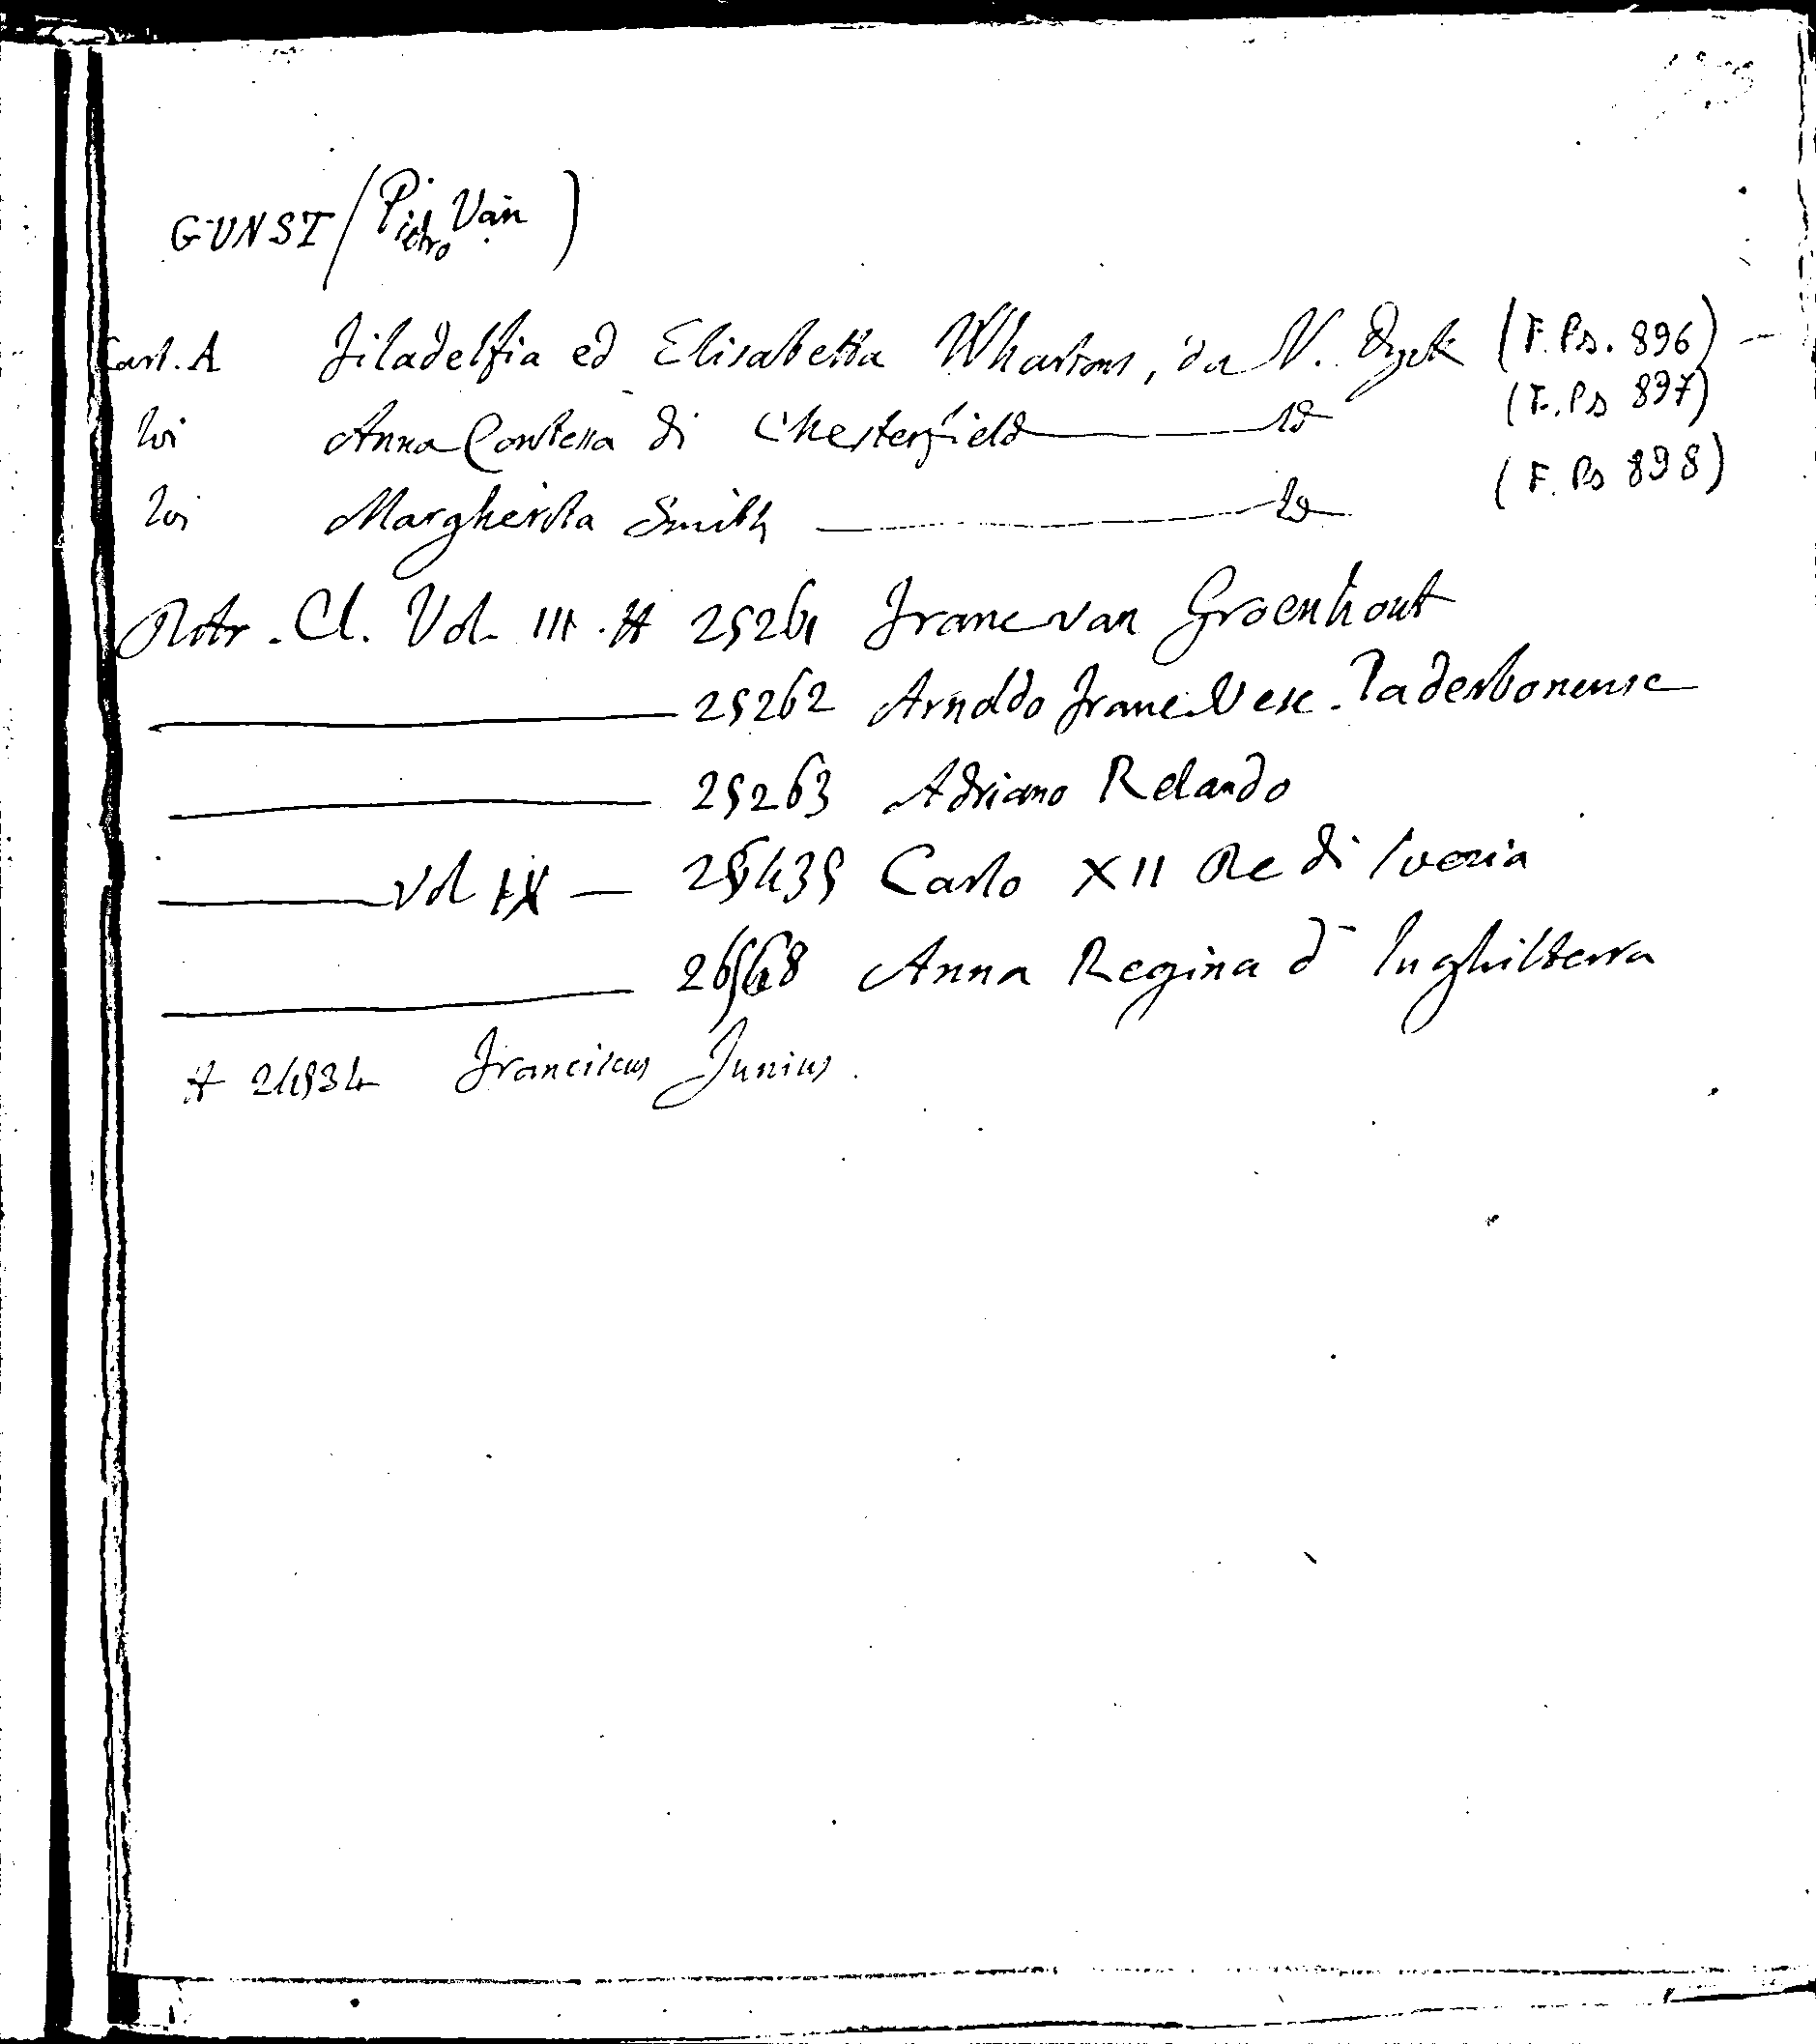 GUNST (Pietro Van)
Cart. A Filadelfia ed Elisabetta Whartons, da V. Dyck (F. Ps. 896)
Ivi Anna Contessa di Chesterfield Id (F. Ps 897)
Ivi Margherita Smith Id (F. Ps 898)
Ritr. Cl. Vol. III. # 25261 Franc van Groenhout
25262 Arnoldo Franc. Vesc. Paderbonense
25263 Adriano Relando
Vol IX — 25435 Carlo XII Re di Svezia
Anna Regina d' Inghilterra
Franciscus Junius.